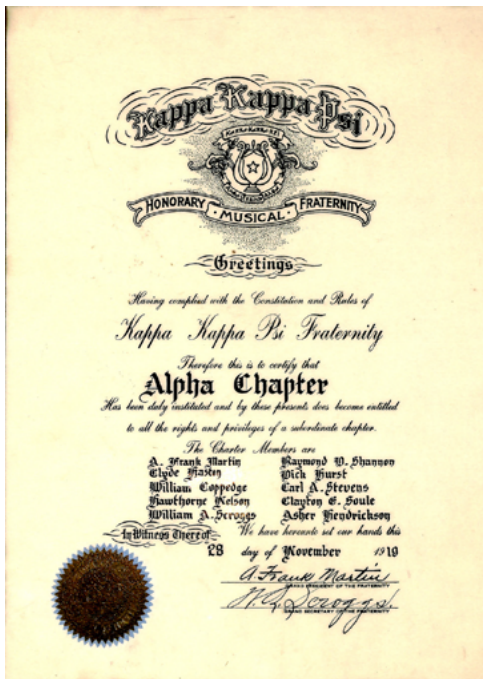 Kappa Kappa Psi
Kappa Kappa Psi
HONORARY MUSICAL FRATERNITY
Greetings
Having complied with the Constitution and Rules of
Kappa Kappa Psi Fraternity
Therefore this is to certify that
Alpha Chapter
Has been duly instituted and by these presents does become entitled
to all the rights and privileges of a subordinate chapter.
The Charter Members are
A. Frank Martin Raymond D. Shannon
Clyde Haston Dick Hurst
William Coppedge Carl A. Stevens
Hawthorne Nelson Clayton E. Soule
William A. Scroggs Asher Hendrickson
In Witness Thereof We have hereunto set our hands this
28 day of November 1919
A. Frank Martin
GRAND PRESIDENT OF THE FRATERNITY
W. A. Scroggs.
GRAND SECRETARY OF THE FRATERNITY